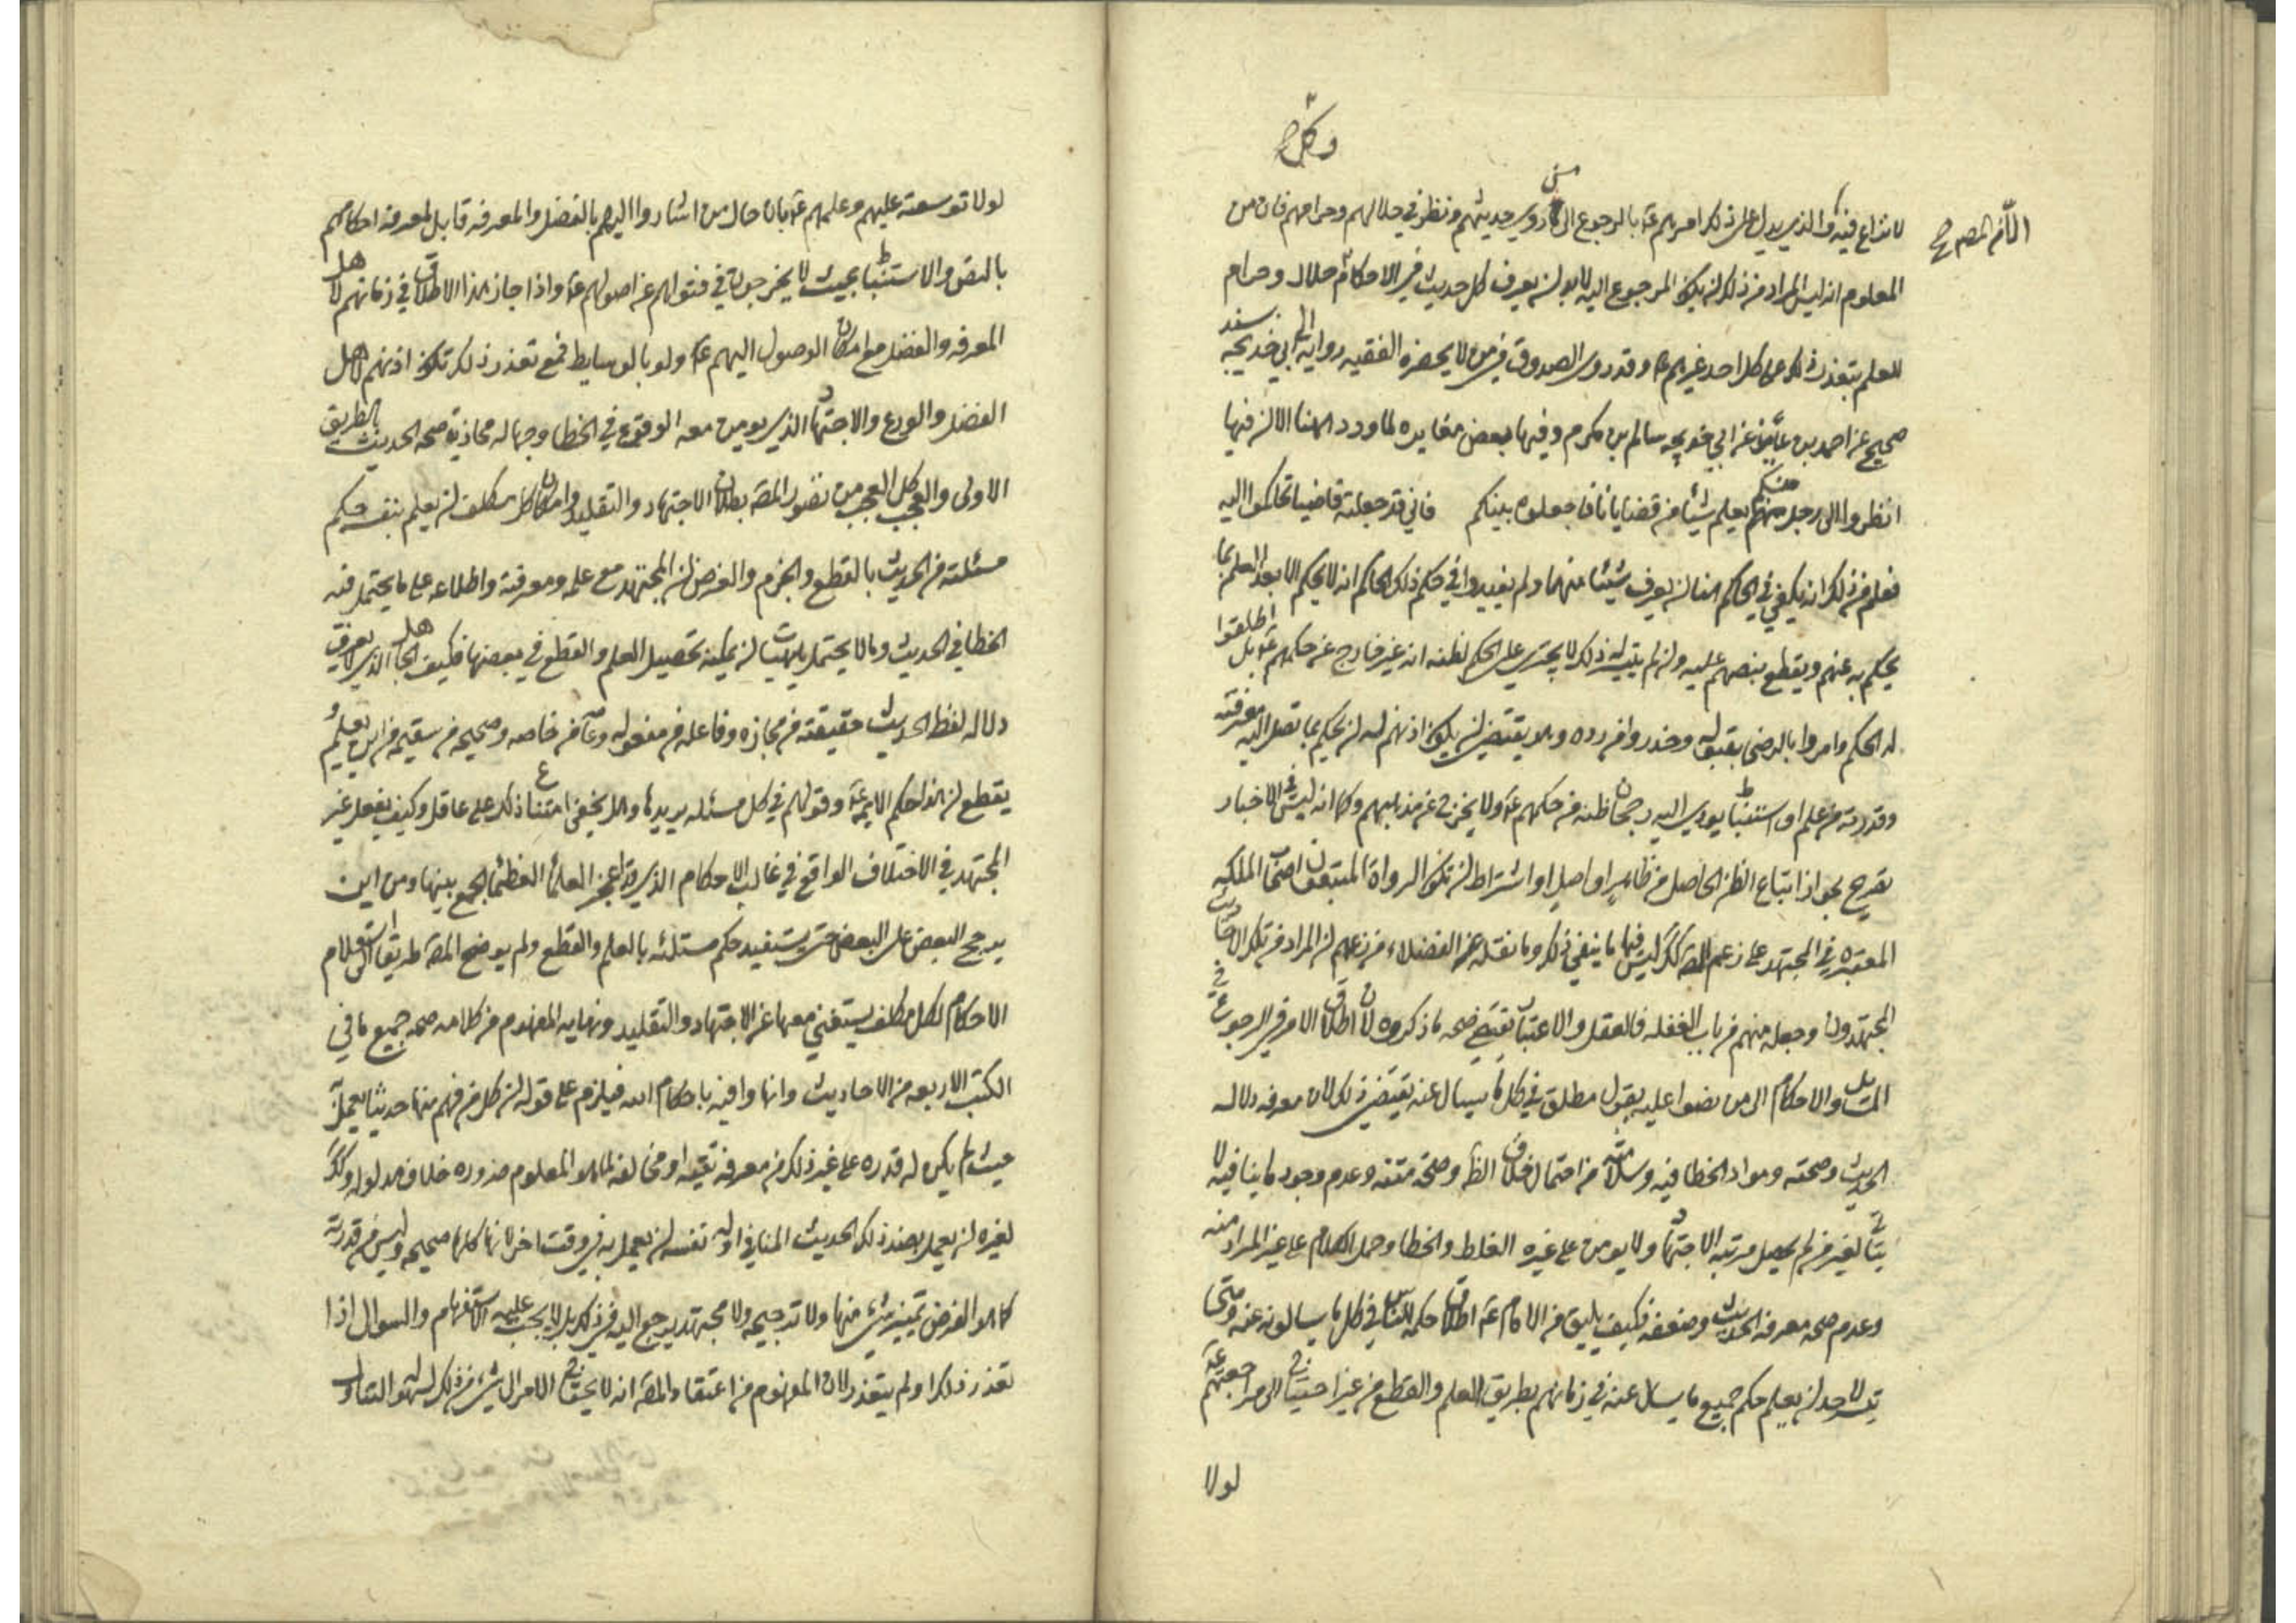 وكل
لا نزاع فيه والذي يدل على ذلك امرهم عم بالرجوع الى من روي حديثهم ونظر في حلالهم وحرامهم فان من
المعلوم انه ليس المراد من ذلك ان يكون المرجوع اليه لابد ان يعرف كل حديث في الاحكام حلال وحرام
للعلم بتعذر ذلك على كل احد غيرهم عم وقد روى الصدوق في من لا يحضره الفقيه رواية ابي خديجه بسند
صحيح عن احمد بن عايذ عن ابي خديجه سالم بن مكرم وفيها بعض مغايره لما ورد هنا الا ان فيها
انظروا الى رجل منكم يعلم شيئا من قضايانا فاجعلوه بينكم فاني قد جعلته قاضيا فتحاكموا اليه
فعلم من ذلك انه يكفي في الحاكم هنا ان يعرف شيئا منها ولم يقيدوا في حكم ذلك الحاكم انه لا يحكم الا بعد العلم بما
يحكم به عنهم ويقطع بنصهم عليه وان لم يتيسر له ذلك لا يجتري على الحكم لظنه انه غير خارج عن حكمهم عم بل اطلقوا
له الحكم وامروا بالرضى بقبوله وحذروا من رده وهو يقتضي ان يكون اذنهم له ان يحكم بما تصل اليه معرفته
وقدرته من علم او استنباط يودي اليه رجحان ظنه من حكمهم عم ولا يخرج عن مذهبهم وكما انه ليس في الاخبار
تصريح بجواز اتباع الظن الحاصل من ظاهر او اصل او اشتراط ان تكون الرواة المتبعون اصحاب الملكه
المعتبره في المجتهد على زعم المص كك ليس فيها ما ينفي ذلك وما نقله عن الفضلاء من زعمهم ان المراد من تلك الاحاديث
المجتهدون وجعله منهم من باب الغفله فالعقل والاعتبار يقتضي صحه ما ذكروه لان اطلاق الامر في الرجوع في
المسايل والاحكام الى من نصوا عليه بقول مطلق في كل ما يسال عنه يقتضي ذلك لان معرفه دلاله
الحديث وصحته ومواد الخطا فيه وسلامته من احتمال خلاف الظ وصحة متنه وعدم وجود ما ينافيه لا
يتاتى لغير من لم يحصل مرتبه الاجتهاد ولا يومن على غيره الغلط والخطا وحمل الكلام على غير المراد منه
وعدم صحه معرفه الحديث وضعفه فكيف يليق من الامام عم اطلاق حكمه للناس في كل ما يسالونه عنه ومتى
تيسر لاحد ان يعلم حكم جميع ما يسال عنه في زمانهم بطريق العلم والقطع من غير احتياج الى مراجعتهم عم
لولا
لولا توسعته عليهم وعلمهم عم بان حال من اشاروا اليهم بالفضل والمعرفه قابل لمعرفه احكامهم
بالنص والاستنباط بحيث لا يخرجون في فتواهم عن اصولهم عم واذا جاز هذا الاطلاق في زمانهم لاهل
المعرفه والفضل مع امكان الوصول اليهم عم ولو بالوسايط فمع تعذر ذلك تكون اذنهم لاهل
الفضل والورع والاجتهاد الذي يومن معه الوقوع في الخطا وجهاله محاذير صحه الحديث بالطريق
الاولى والعجب كل العجب من تصور المص بطلان الاجتهاد والتقليد وامكان كل مكلف ان يعلم بنفسه حكم
مسئلته من الحديث بالقطع والجزم والفرض ان المجتهد مع علمه ومعرفته واطلاعه على ما يحتمل فيه
الخطا في الحديث وما لا يحتمل يمكنه تحصيل العلم والقطع في بعضها فكيف الجاهل الذي لا يعرف
دلاله لفظ الحديث حقيقته من مجازه وفاعله من مفعوله وعامه من خاصه وصحيحه من سقيمه من اين يعلم و
يقطع ان هذا حكم الايمه عم وقولهم في كل مسئله يريدها ولا يخفى امتناع ذلك على عاقل وكيف يفعل غير
المجتهد في الاختلاف الواقع في غالب الاحكام الذي قد اعجز العلما العظما الجمع بينها ومن اين
يرجح البعض على البعض حتى يستفيد حكم مسئلته بالعلم والقطع ولم يوضح المص طريقا الى استعلام
الاحكام لكل مكلف يستغني معها عن الاجتهاد والتقليد ونهايه المفهوم من كلامه صحه جميع ما في
الكتب الاربعه من الاحاديث وانها وافيه باحكام الله فيلزم على قوله ان كل من فهم منها حديثا يعمل به
حيث لم يكن له قدره على غير ذلك من معرفه تقيه او مخالفه لما هو المعلوم ضروره خلاف مدلوله وكك
لغيره ان يعمل بضد ذلك الحديث المنافي او له نفسه ان يعمل به في وقت اخر لانها كلها صحيحه وليس من قدرته
كما هو الفرض تمييز شيء منها ولا ترجيحه ولا مجتهد يرجع اليه في ذلك بل لا يجب عليه الاستفهام والسوال اذا
تعذر ذلك او لم يتعذر لان المفهوم من اعتقاد المص انه لا يحتاج الامر الى شيء من ذلك لسهولته